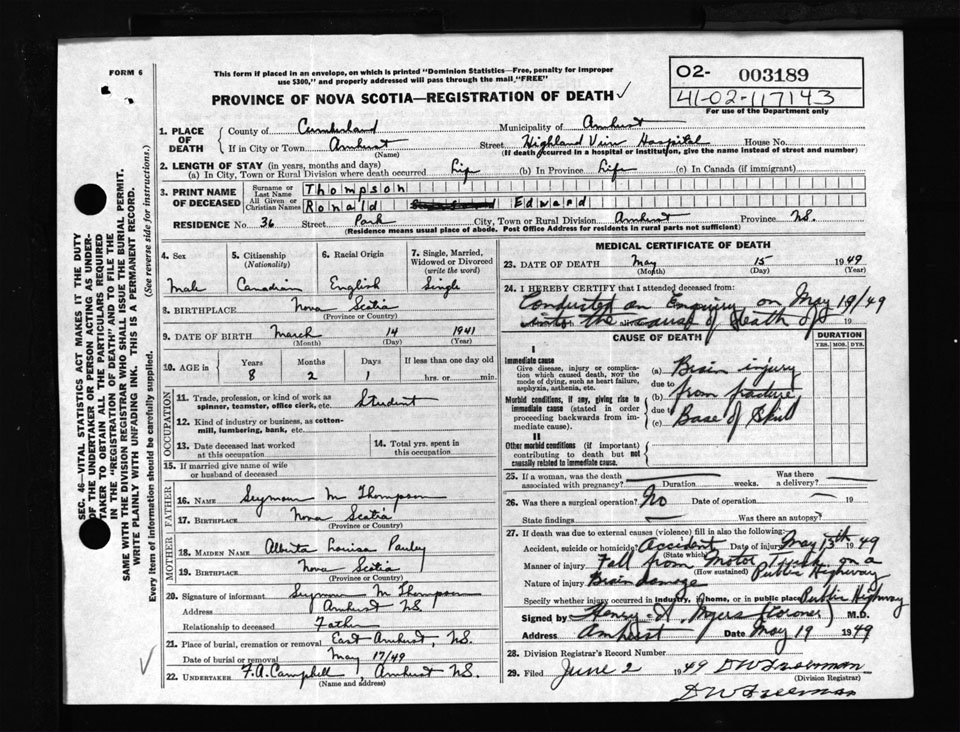 FORM 6
This form if placed in an envelope, on which is printed "Dominion Statistics—Free, penalty for improper
use $300," and properly addressed will pass through the mail "FREE"
PROVINCE OF NOVA SCOTIA—REGISTRATION OF DEATH ✓
02- 003189
41-02-117143
For use of the Department only
SEC. 46—VITAL STATISTICS ACT MAKES IT THE DUTY
OF THE UNDERTAKER OR PERSON ACTING AS UNDER-
TAKER TO OBTAIN ALL THE PARTICULARS REQUIRED
IN THE "REGISTRATION OF DEATH" AND TO FILE THE
SAME WITH THE DIVISION REGISTRAR WHO SHALL ISSUE THE BURIAL PERMIT.
WRITE PLAINLY WITH UNFADING INK. THIS IS A PERMANENT RECORD.
Every item of information should be carefully supplied. (See reverse side for instructions.)
1. PLACE OF DEATH
County of Cumberland Municipality of Amherst
If in City or Town Amherst Street Highland View Hospital House No.
(Name) (If death occurred in a hospital or institution, give the name instead of street and number)
2. LENGTH OF STAY (in years, months and days)
(a) In City, Town or Rural Division where death occurred Life (b) In Province Life (c) In Canada (if immigrant)
3. PRINT NAME OF DECEASED
Surname or Last Name Thompson
All Given or Christian Names Ronald Edward
RESIDENCE No. 36 Street Park City, Town or Rural Division Amherst Province N.S.
(Residence means usual place of abode. Post Office Address for residents in rural parts not sufficient)
4. Sex Male
5. Citizenship (Nationality) Canadian
6. Racial Origin English
7. Single, Married, Widowed or Divorced (write the word) Single
8. BIRTHPLACE Nova Scotia
(Province or Country)
9. DATE OF BIRTH March 14 1941
(Month) (Day) (Year)
10. AGE in Years Months Days If less than one day old
8 2 1 hrs. or min.
OCCUPATION
11. Trade, profession, or kind of work as
spinner, teamster, office clerk, etc. Student
12. Kind of industry or business, as cotton-
mill, lumbering, bank, etc.
13. Date deceased last worked
at this occupation
14. Total yrs. spent in
this occupation
15. If married give name of wife
or husband of deceased
FATHER
16. NAME Seymour M Thompson
17. BIRTHPLACE Nova Scotia
(Province or Country)
MOTHER
18. MAIDEN NAME Alberta Louisa Pauley
19. BIRTHPLACE Nova Scotia
(Province or Country)
20. Signature of informant Seymour M. Thompson
Address Amherst NS
Relationship to deceased Father
21. Place of burial, cremation or removal East Amherst, N.S.
Date of burial or removal May 17/49
22. UNDERTAKER F.A. Campbell, Amherst NS.
(Name and address)
MEDICAL CERTIFICATE OF DEATH
23. DATE OF DEATH May 15 1949
(Month) (Day) (Year)
24. I HEREBY CERTIFY that I attended deceased from:
Conducted an Enquiry on May 19/49
into the cause of death of 19
CAUSE OF DEATH
DURATION
YRS. MOS. DYS.
I
Immediate cause
Give disease, injury or complica-
tion which caused death, NOT the
mode of dying, such as heart failure,
asphyxia, asthenia, etc.
(a) Brain injury
due to
Morbid conditions, if any, giving rise to
immediate cause (stated in order
proceeding backwards from im-
mediate cause).
(b) from fracture
due to
(c) Base of Skull
II
Other morbid conditions (if important)
contributing to death but not
causally related to immediate cause.
25. If a woman, was the death
associated with pregnancy? Duration weeks. Was there
a delivery?
26. Was there a surgical operation? No Date of operation 19
State findings Was there an autopsy?
27. If death was due to external causes (violence) fill in also the following:
Accident, suicide or homicide? Accident Date of injury May 15th 1949
(State which)
Manner of injury Fall from Motor Truck on a
(How sustained) Public Highway
Nature of injury Brain damage
Specify whether injury occurred in industry, home, or in public place Public Highway
Signed by Henry A. Myers (Coroner) M.D.
Address Amherst Date May 19 1949
28. Division Registrar's Record Number
29. Filed June 2 1949 D W Freeman
(Division Registrar)
D W Freeman